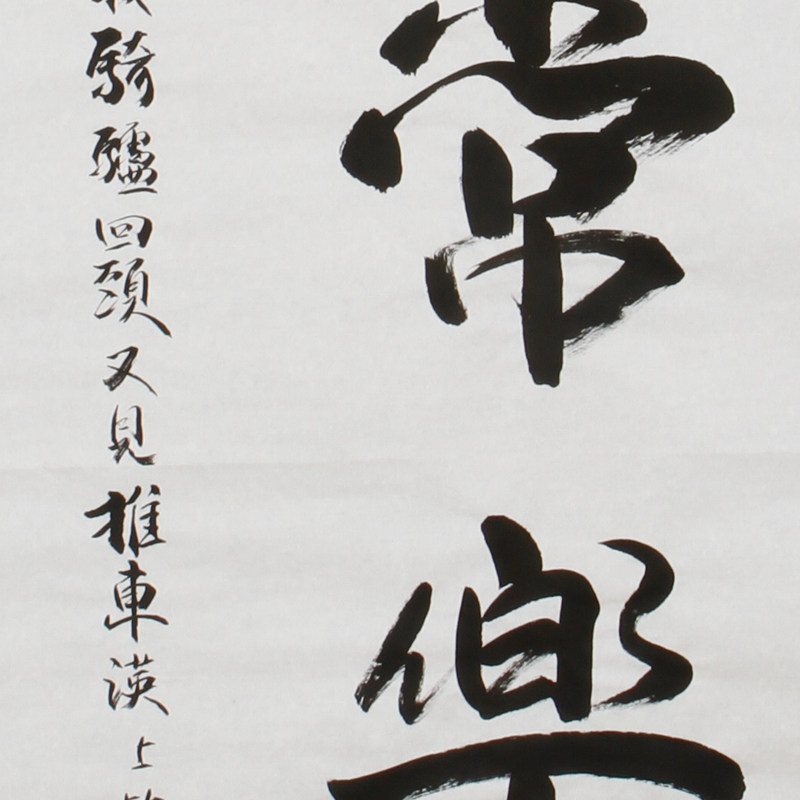 常樂
騎驢回頭又見推車漢上